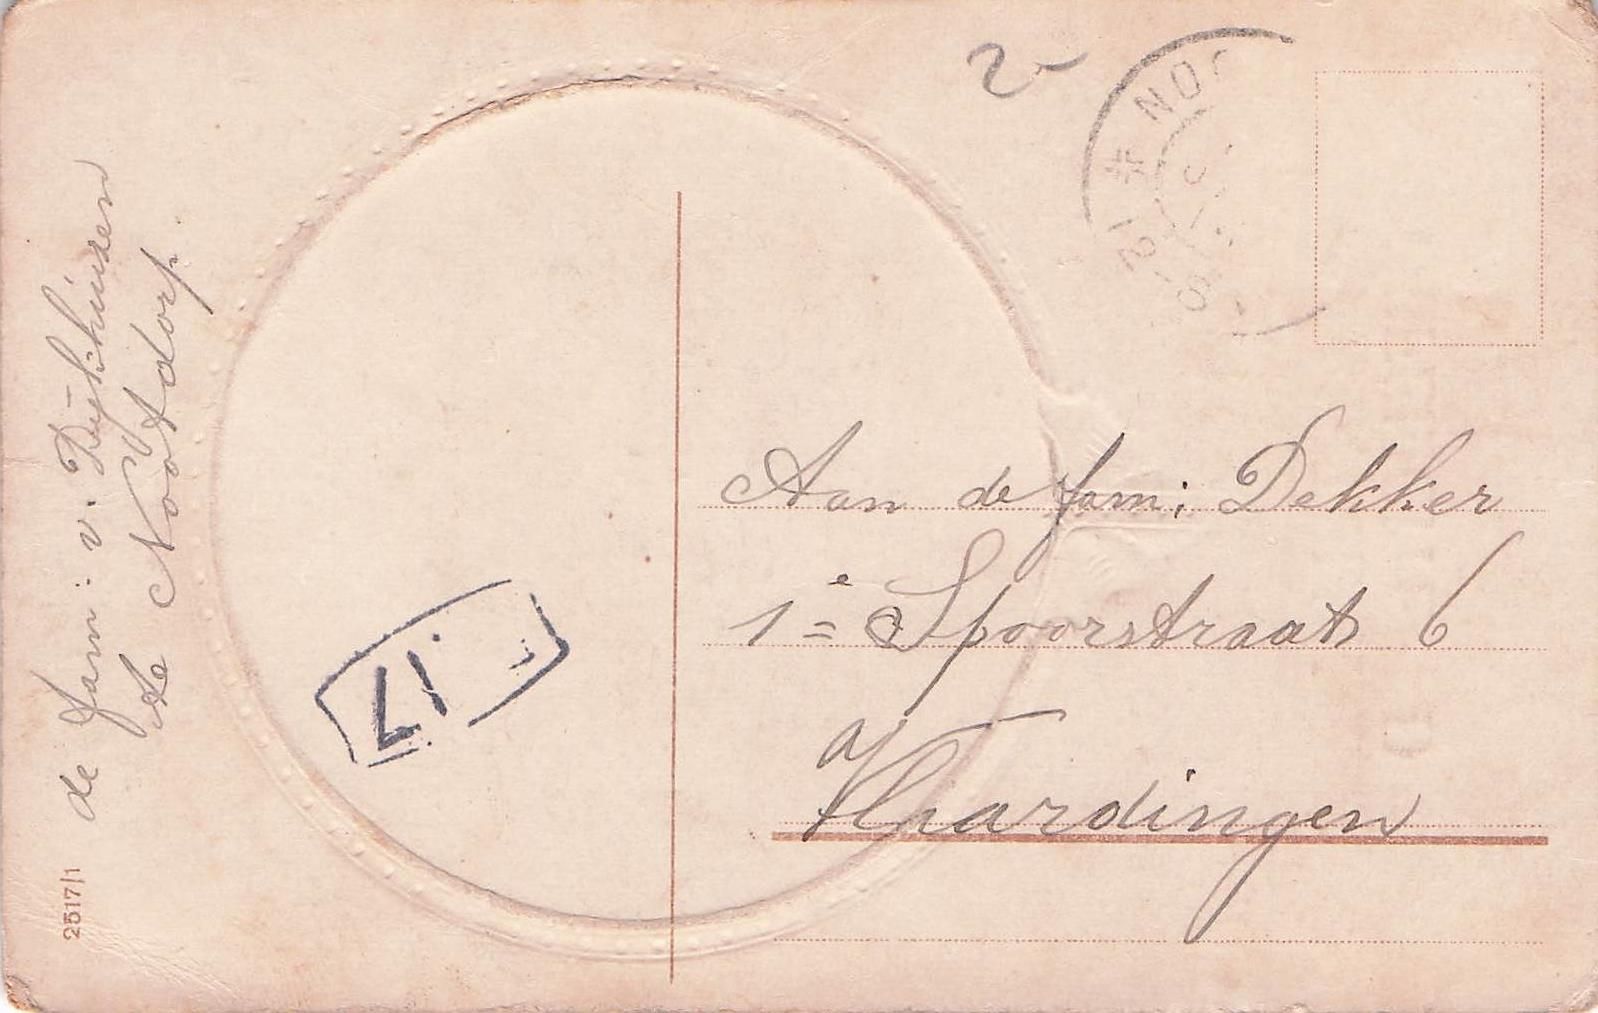 de fam: v. Dijkhuizen
te Nootdorp
2517/1
2
NO
12
17
Aan de fam; Dekker
1e Spoorstraat 6
a/
Vlaardingen